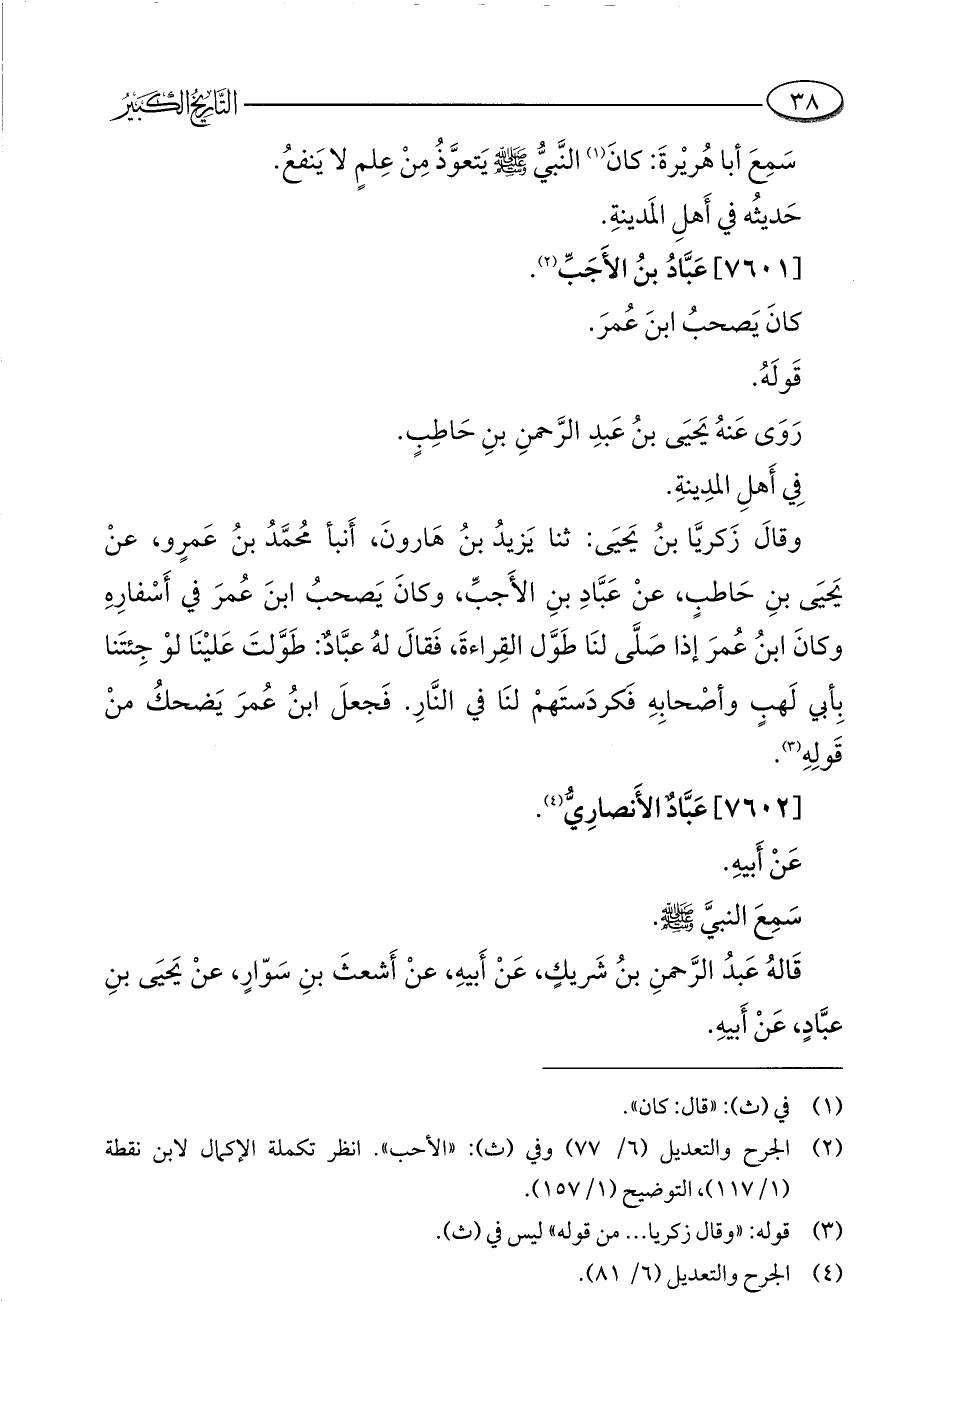 ٣٨ التاريخ الكبير
سَمِعَ أبا هُريْرةَ: كانَ(١) النَّبيُّ ﷺ يَتعوَّذُ مِنْ عِلمٍ لا يَنفعُ.
حَديثُه في أَهلِ المَدينةِ.
[٧٦٠١] عَبَّادُ بنُ الأَجَبِّ(٢).
كانَ يَصحبُ ابنَ عُمرَ.
قَولَهُ.
رَوَى عَنهُ يَحيَى بنُ عَبدِ الرَّحمنِ بنِ حَاطِبٍ.
فِي أَهلِ المدِينةِ.
وقالَ زَكريَّا بنُ يَحيَى: ثنا يَزيدُ بنُ هَارونَ، أَنبأ مُحمَّدُ بنُ عَمرٍو، عنْ
يَحيَى بنِ حَاطبٍ، عنْ عَبَّادِ بنِ الأَجبِّ، وكانَ يَصحبُ ابنَ عُمرَ في أَسْفارِهِ
وكانَ ابنُ عُمرَ إذا صَلَّى لنَا طَوَّل القِراءةَ، فَقالَ لهُ عبَّادٌ: طَوَّلتَ علَيْنَا لوْ جِئتَنا
بِأبي لَهبٍ وأصْحابِهِ فَكردَستَهمْ لنَا في النَّارِ. فَجعلَ ابنُ عُمرَ يَضحكُ منْ
قَولِهِ(٣).
[٧٦٠٢] عَبَّادٌ الأَنصارِيُّ(٤).
عَنْ أَبيهِ.
سَمِعَ النبيَّ ﷺ.
قَالهُ عَبدُ الرَّحمنِ بنُ شَريكٍ، عَنْ أَبيهِ، عنْ أَشعثَ بنِ سَوّارٍ، عنْ يَحيَى بنِ
عبَّادٍ، عَنْ أَبيهِ.
(١) في (ث): «قال: كان».
(٢) الجرح والتعديل (٦/ ٧٧) وفي (ث): «الأحب». انظر تكملة الإكمال لابن نقطة
(١/ ١١٧)، التوضيح (١/ ١٥٧).
(٣) قوله: «وقال زكريا... من قوله» ليس في (ث).
(٤) الجرح والتعديل (٦/ ٨١).